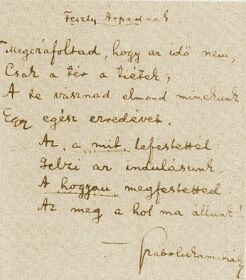 Feszty Árpádnak
Megczáfoltad, hogy az idő nem,
Csak a tér a tiétek,
A te vásznad elmond minekünk
Egy egész ezredévet.
Az, a mit lefestettél
Jelzi az indulásunk
A hogyan megfestetted:
Az meg a hol ma állunk!
Szabolcskamihály